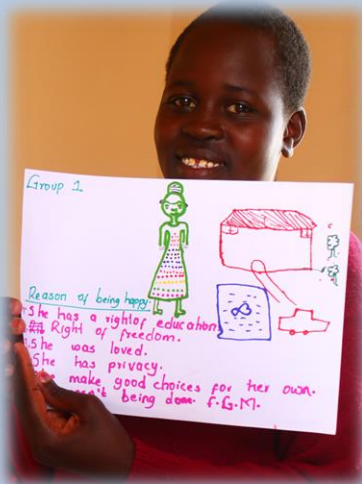 Group 1
Reason of being happy.
She has a right of education
Right of freedom.
She was loved.
She has privacy.
make good choices for her own.
being done. F.G.M.